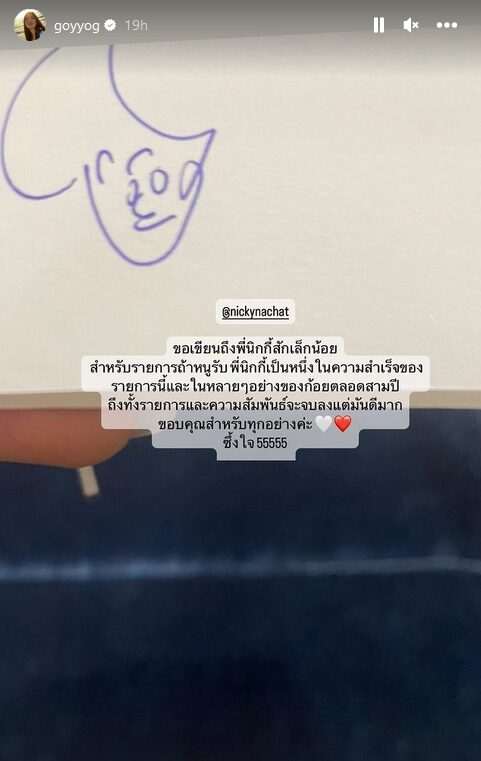 goyyog 19h
@nickynachat
ขอเขียนถึงพี่นิกกี้สักเล็กน้อย
สำหรับรายการถ้าหนูรับ พี่นิกกี้เป็นหนึ่งในความสำเร็จของ
รายการนี้และในหลายๆอย่างของก้อยตลอดสามปี
ถึงทั้งรายการและความสัมพันธ์จะจบลงแต่มันดีมาก
ขอบคุณสำหรับทุกอย่างค่ะ🤍❤️
ซึ้งใจ 55555